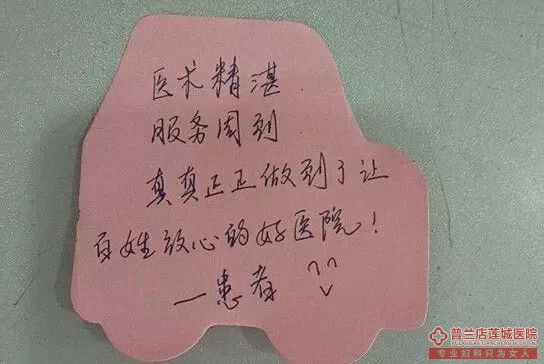 医术精湛
服务周到
真真正正做到了让
百姓放心的好医院！
—患者
普兰店莲城医院
专业妇科只为女人